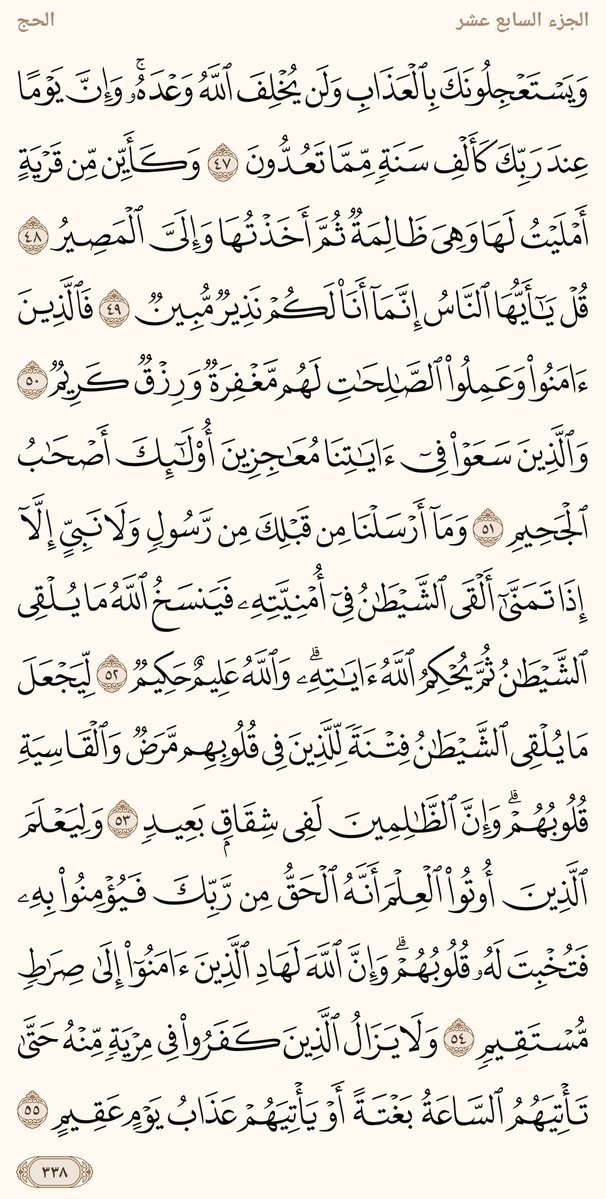 الجزء السابع عشر
الحج
وَيَسْتَعْجِلُونَكَ بِٱلْعَذَابِ وَلَن يُخْلِفَ ٱللَّهُ وَعْدَهُۥۚ وَإِنَّ يَوْمًا
عِندَ رَبِّكَ كَأَلْفِ سَنَةٍ مِّمَّا تَعُدُّونَ ٤٧ وَكَأَيِّن مِّن قَرْيَةٍ
أَمْلَيْتُ لَهَا وَهِىَ ظَالِمَةٌ ثُمَّ أَخَذْتُهَا وَإِلَىَّ ٱلْمَصِيرُ ٤٨
قُلْ يَـٰٓأَيُّهَا ٱلنَّاسُ إِنَّمَآ أَنَا۠ لَكُمْ نَذِيرٌ مُّبِينٌ ٤٩ فَٱلَّذِينَ
ءَامَنُوا۟ وَعَمِلُوا۟ ٱلصَّـٰلِحَـٰتِ لَهُم مَّغْفِرَةٌ وَرِزْقٌ كَرِيمٌ ٥٠
وَٱلَّذِينَ سَعَوْا۟ فِىٓ ءَايَـٰتِنَا مُعَـٰجِزِينَ أُو۟لَـٰٓئِكَ أَصْحَـٰبُ
ٱلْجَحِيمِ ٥١ وَمَآ أَرْسَلْنَا مِن قَبْلِكَ مِن رَّسُولٍ وَلَا نَبِىٍّ إِلَّآ
إِذَا تَمَنَّىٰٓ أَلْقَى ٱلشَّيْطَـٰنُ فِىٓ أُمْنِيَّتِهِۦ فَيَنسَخُ ٱللَّهُ مَا يُلْقِى
ٱلشَّيْطَـٰنُ ثُمَّ يُحْكِمُ ٱللَّهُ ءَايَـٰتِهِۦۗ وَٱللَّهُ عَلِيمٌ حَكِيمٌ ٥٢ لِّيَجْعَلَ
مَا يُلْقِى ٱلشَّيْطَـٰنُ فِتْنَةً لِّلَّذِينَ فِى قُلُوبِهِم مَّرَضٌ وَٱلْقَاسِيَةِ
قُلُوبُهُمْۗ وَإِنَّ ٱلظَّـٰلِمِينَ لَفِى شِقَاقٍۭ بَعِيدٍ ٥٣ وَلِيَعْلَمَ
ٱلَّذِينَ أُوتُوا۟ ٱلْعِلْمَ أَنَّهُ ٱلْحَقُّ مِن رَّبِّكَ فَيُؤْمِنُوا۟ بِهِۦ
فَتُخْبِتَ لَهُۥ قُلُوبُهُمْۗ وَإِنَّ ٱللَّهَ لَهَادِ ٱلَّذِينَ ءَامَنُوٓا۟ إِلَىٰ صِرَٰطٍ
مُّسْتَقِيمٍ ٥٤ وَلَا يَزَالُ ٱلَّذِينَ كَفَرُوا۟ فِى مِرْيَةٍ مِّنْهُ حَتَّىٰ
تَأْتِيَهُمُ ٱلسَّاعَةُ بَغْتَةً أَوْ يَأْتِيَهُمْ عَذَابُ يَوْمٍ عَقِيمٍ ٥٥
٣٣٨